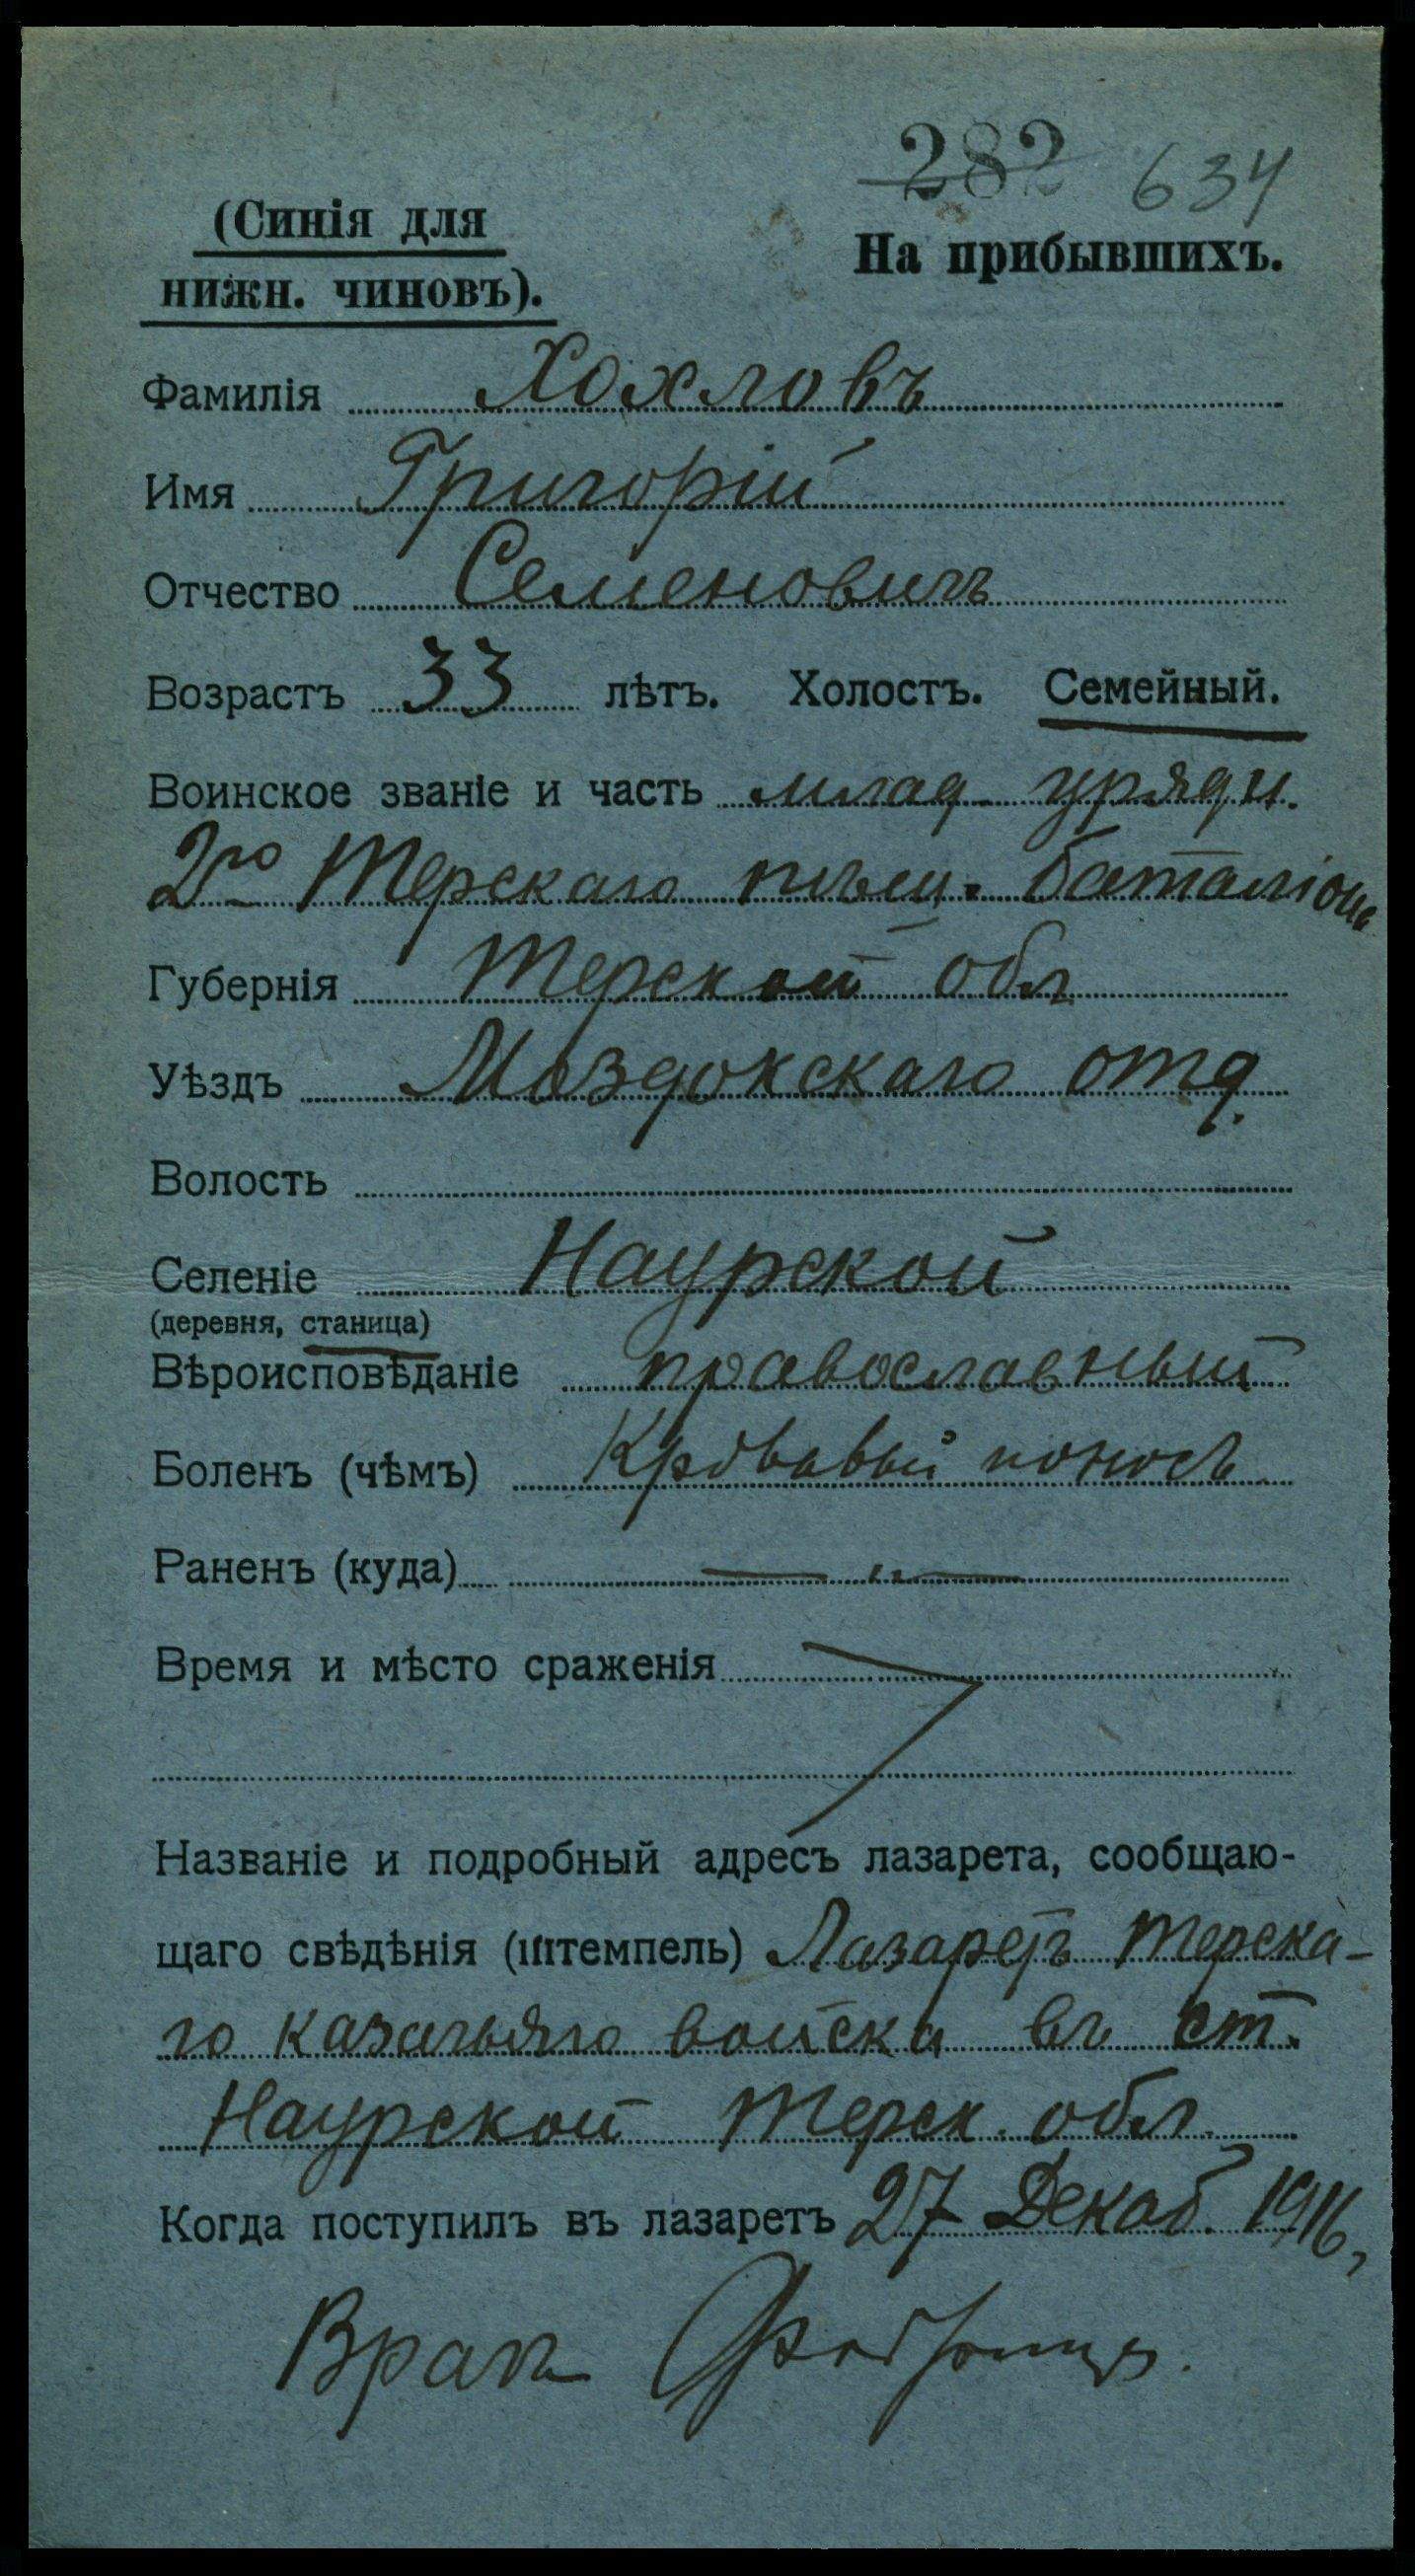 282 634
(Синія для
нижн. чиновъ).
На прибывшихъ.
Фамилія Хохловъ
Имя Григорій
Отчество Семеновичъ
Возрастъ 33 лѣтъ. Холостъ. Семейный.
Воинское званіе и часть млад. урядн.
2го Терскаго пѣш. баталіона
Губернія Терской обл
Уѣздъ Моздокскаго отд.
Волость
Селеніе Наурской
(деревня, станица)
Вѣроисповѣданіе православный
Боленъ (чѣмъ) Кровавый поносъ
Раненъ (куда) — „ —
Время и мѣсто сраженія
Названіе и подробный адресъ лазарета, сообщаю-
щаго свѣдѣнія (штемпель) Лазаретъ Терска-
го казачьяго войска въ ст.
Наурской Терск. обл.
Когда поступилъ въ лазаретъ 27 Декаб. 1916,
Врач